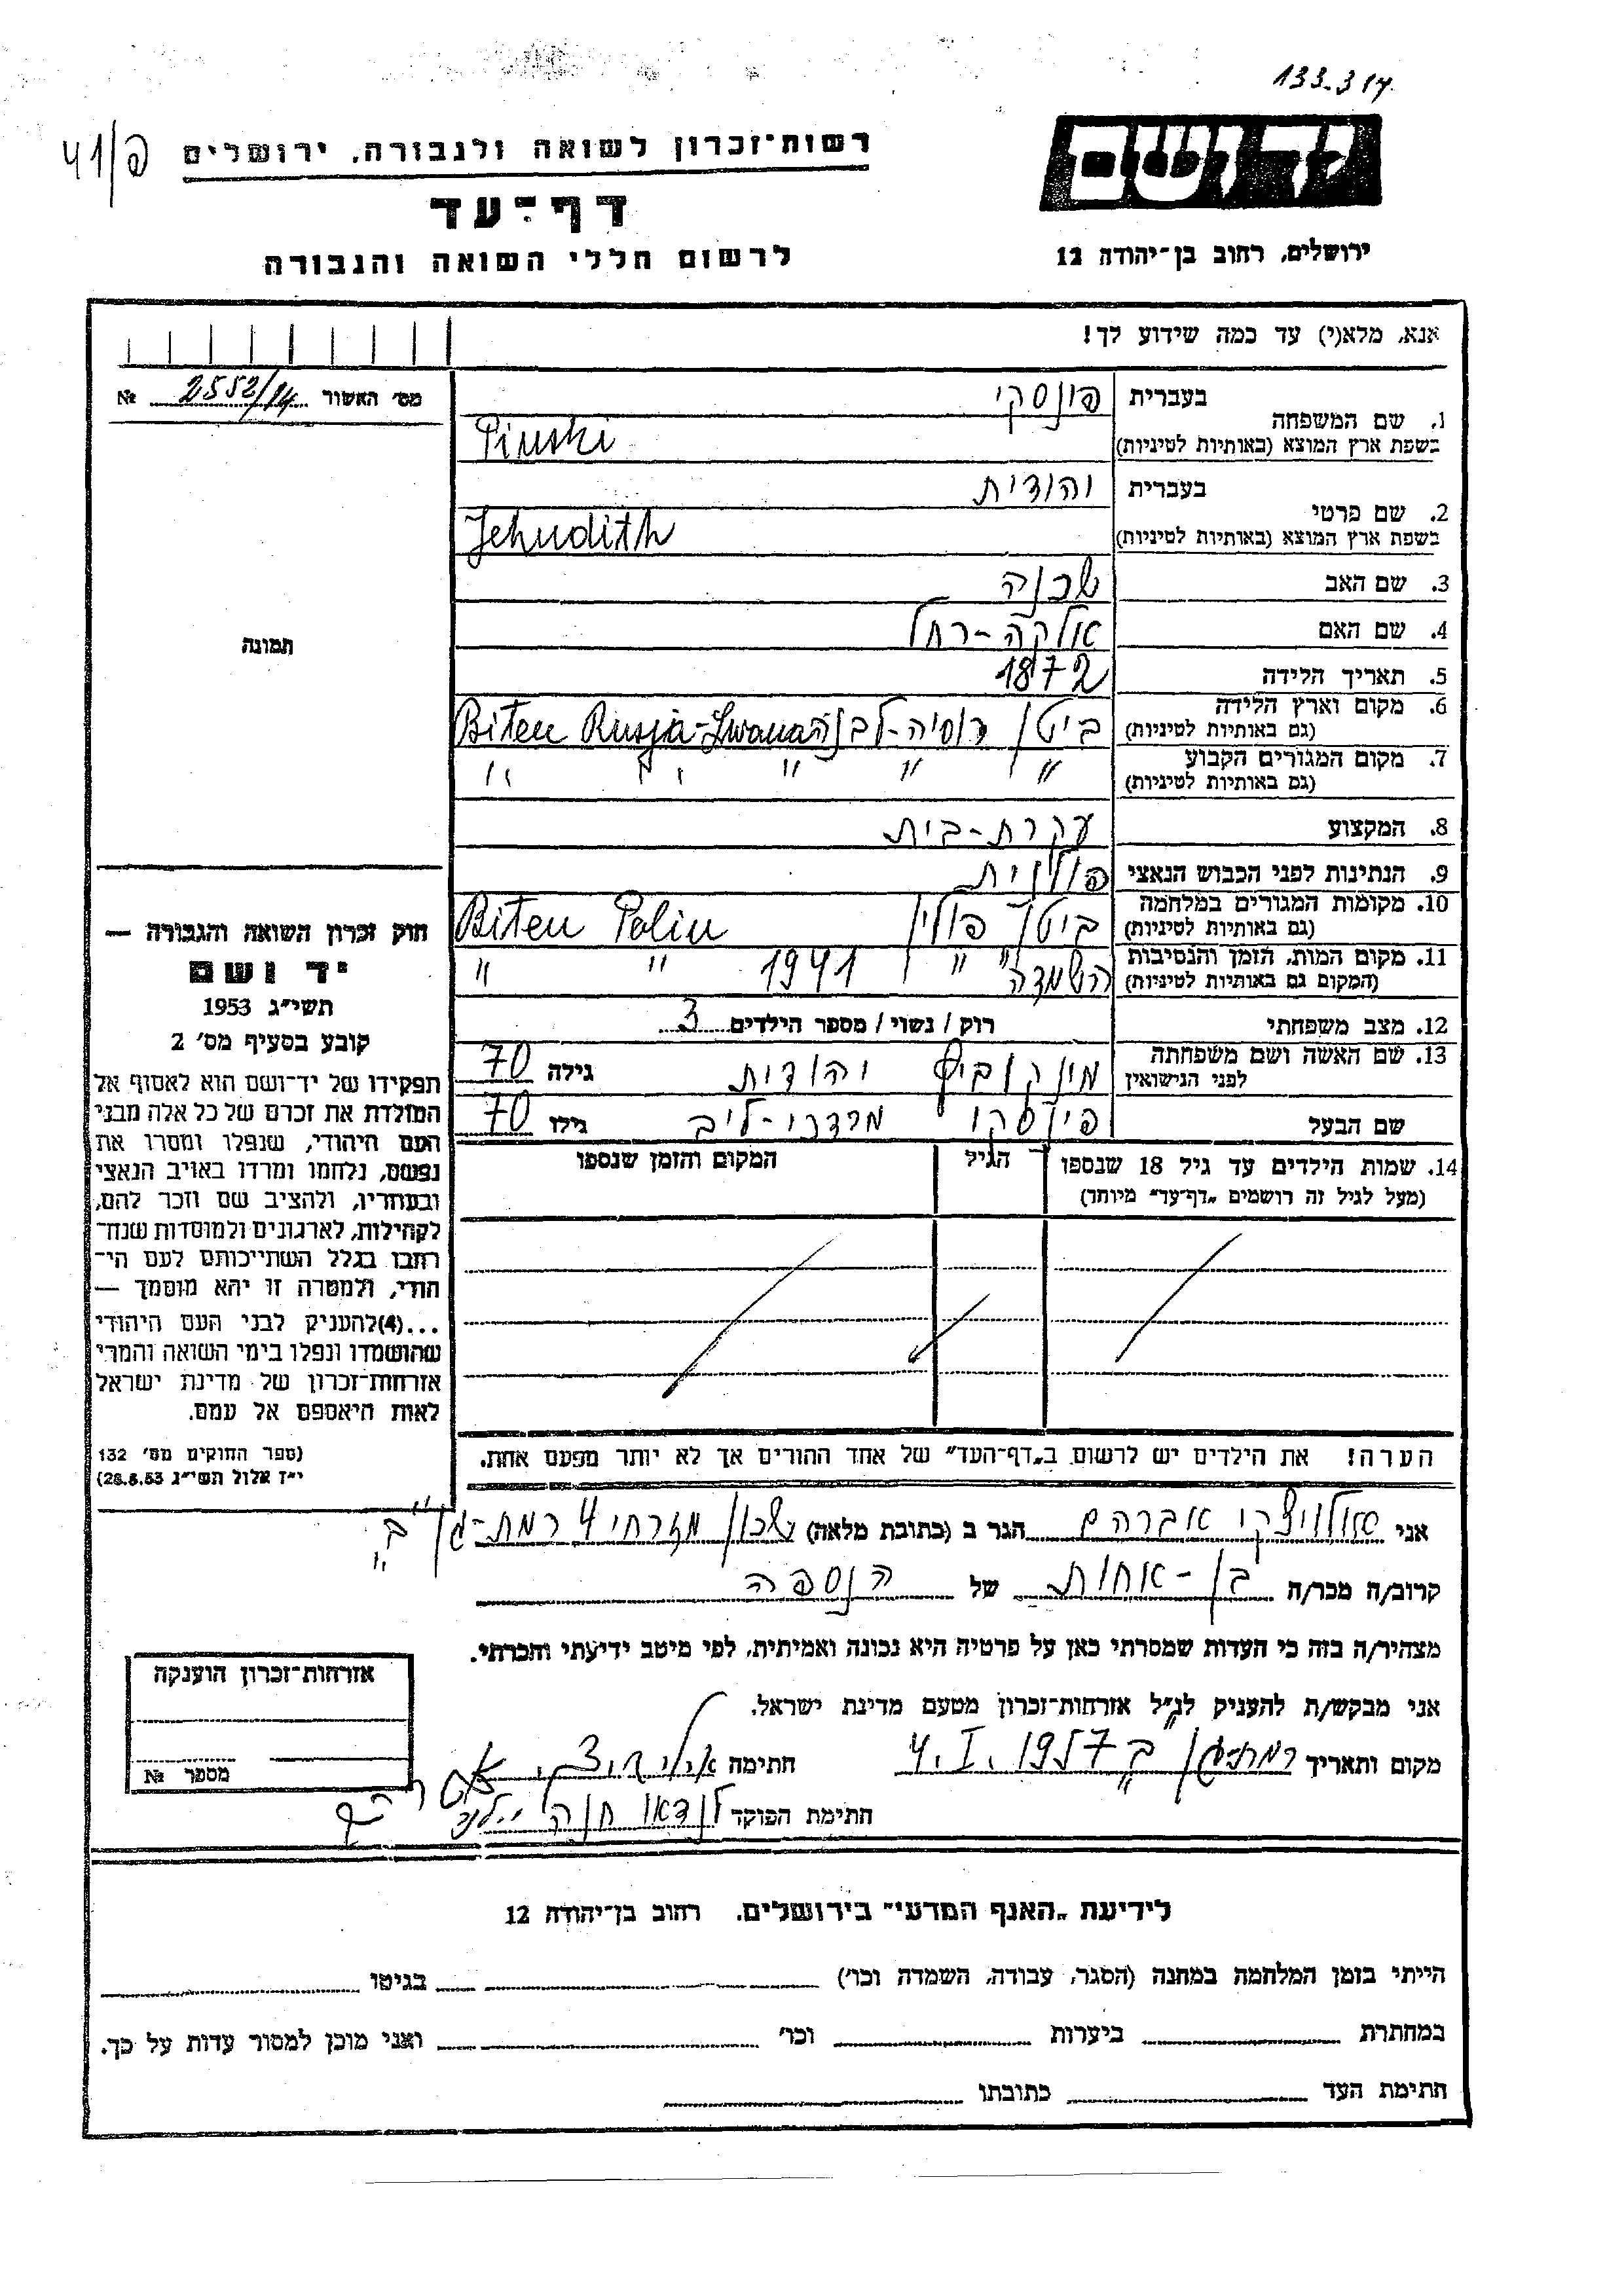 133-314
יד ושם
ירושלים, רחוב בן־יהודה 12
רשות־זכרון לשואה ולגבורה, ירושלים
41/פ
דף־עד
לרשום חללי השואה והגבורה
אנא, מלא(י) עד כמה שידוע לך!
מס׳ האשור 2552/14 №
תמונה
1. שם המשפחה בעברית פינסקי
בשפת ארץ המוצא (באותיות לטיניות) Pinski
2. שם פרטי בעברית יהודית
בשפת ארץ המוצא (באותיות לטיניות) Jehudith
3. שם האב שכנה
4. שם האם אלקה-רחל
5. תאריך הלידה 1872
6. מקום וארץ הלידה ביטן רוסיה-לבנה Biten Rusja-Lwana
(גם באותיות לטיניות)
7. מקום המגורים הקבוע " " " " "
(גם באותיות לטיניות)
8. המקצוע עקרת-בית
9. הנתינות לפני הכבוש הנאצי פולנית
10. מקומות המגורים במלחמה ביטן פולין Biten Polin
(גם באותיות לטיניות)
11. מקום המות, הזמן והנסיבות השמדה " " 1941 " "
(המקום גם באותיות לטיניות)
12. מצב משפחתי רוק / נשוי / מספר הילדים 3
13. שם האשה ושם משפחתה יהודית גילה 70
לפני הנישואין
שם הבעל פינסקי מרדכי-ליב גילו 70
14. שמות הילדים עד גיל 18 שנספו הגיל המקום והזמן שנספו
(מעל לגיל זה רושמים „דף־עד״ מיוחד)
הערה! את הילדים יש לרשום ב„דף־העד״ של אחד ההורים אך לא יותר מפעם אחת.
חוק זכרון השואה והגבורה —
יד ושם
תשי״ג 1953
קובע בסעיף מס׳ 2
תפקידו של יד־ושם הוא לאסוף אל
המולדת את זכרם של כל אלה מבני
העם היהודי, שנפלו ומסרו את
נפשם, נלחמו ומרדו באויב הנאצי
ובעוזריו, ולהציב שם וזכר להם,
לקהילות, לארגונים ולמוסדות שנח־
רבו בגלל השתייכותם לעם הי־
הודי, ולמטרה זו יהא מוסמך —
...(4)להעניק לבני העם היהודי
שהושמדו ונפלו בימי השואה והמרי
אזרחות־זכרון של מדינת ישראל
לאות היאספם אל עמם.
(ספר החוקים מס׳ 132
י״ז אלול תשי״ג 28.8.53)
אני אברהם הגר ב (כתובת מלאה) שכון מזרחי 4 רמת-גן ב"
קרוב/ה מכר/ה בן-אחות של הנספה
מצהיר/ה בזה כי העדות שמסרתי כאן על פרטיה היא נכונה ואמיתית, לפי מיטב ידיעתי והכרתי.
אני מבקש/ת להעניק לנ״ל אזרחות־זכרון מטעם מדינת ישראל.
מקום ותאריך רמת-גן ב" 4.I.1957 חתימה
חתימת הפוקד לנדאו חנה
אזרחות־זכרון הוענקה
מספר №
לידיעת „האגף המדעי״ בירושלים, רחוב בן־יהודה 12
הייתי בזמן המלחמה במחנה (הסגר, עבודה, השמדה וכו׳) בגיטו
במחתרת ביערות וכו׳ ואני מוכן למסור עדות על כך.
חתימת העד כתובתו